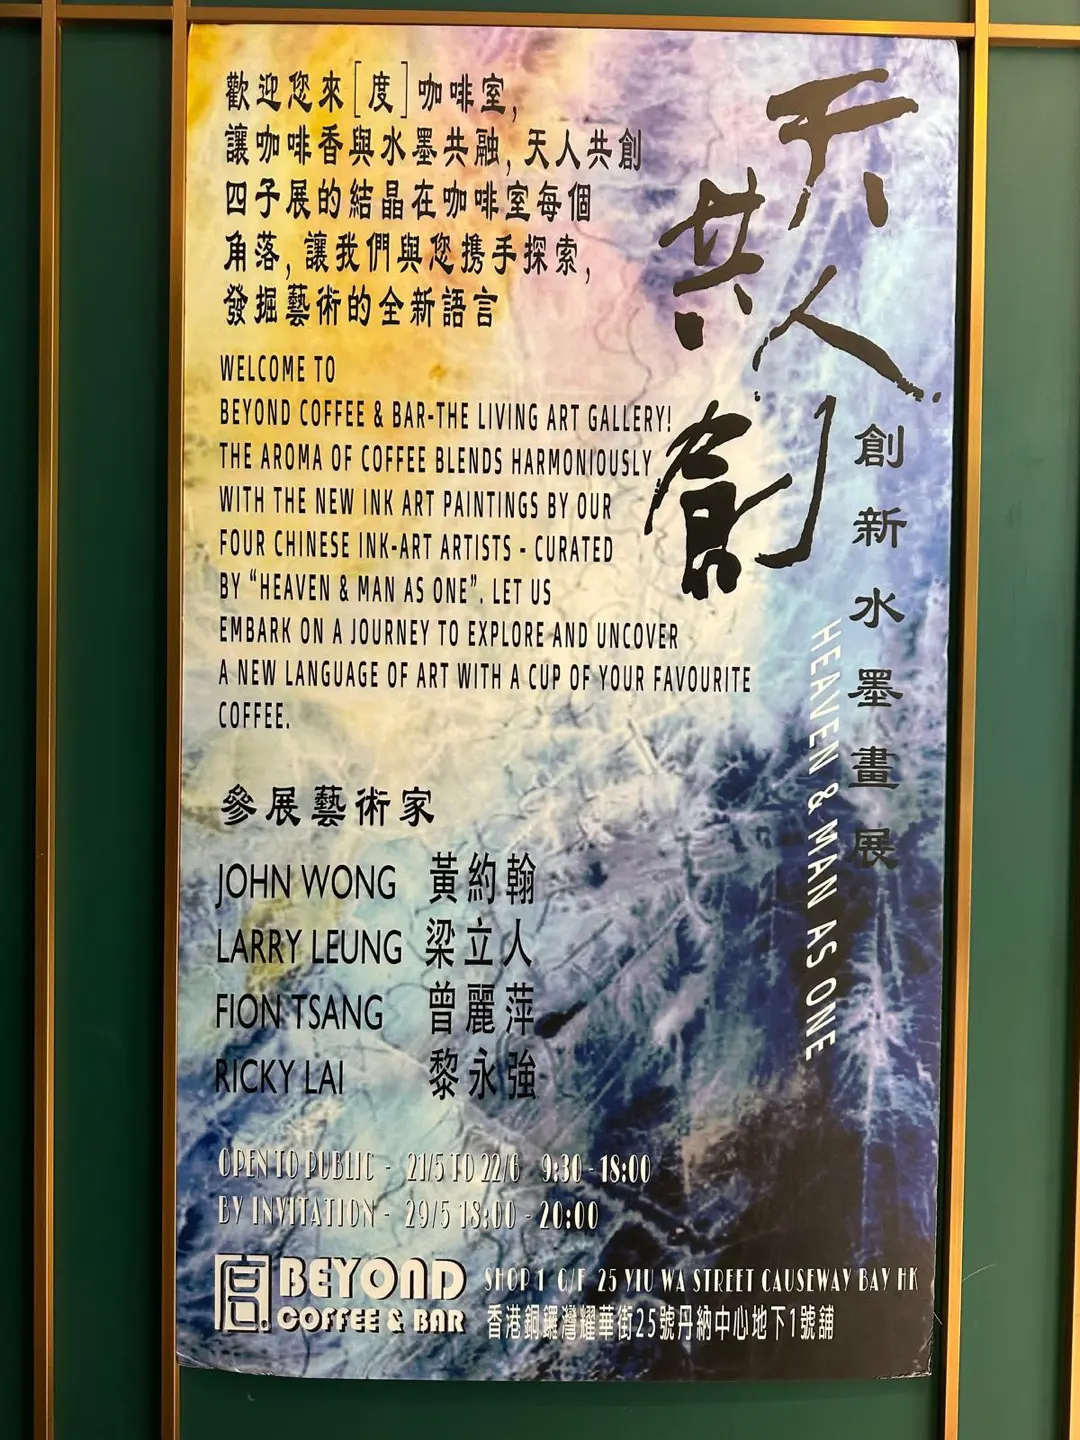 歡迎您來［度］咖啡室，
讓咖啡香與水墨共融，天人共創
四子展的結晶在咖啡室每個
角落，讓我們與您携手探索，
發掘藝術的全新語言
WELCOME TO
BEYOND COFFEE & BAR-THE LIVING ART GALLERY!
THE AROMA OF COFFEE BLENDS HARMONIOUSLY
WITH THE NEW INK ART PAINTINGS BY OUR
FOUR CHINESE INK-ART ARTISTS - CURATED
BY “HEAVEN & MAN AS ONE”. LET US
EMBARK ON A JOURNEY TO EXPLORE AND UNCOVER
A NEW LANGUAGE OF ART WITH A CUP OF YOUR FAVOURITE
COFFEE.
天人共創
創新水墨畫展
HEAVEN & MAN AS ONE
參展藝術家
JOHN WONG 黃約翰
LARRY LEUNG 梁立人
FION TSANG 曾麗萍
RICKY LAI 黎永強
OPEN TO PUBLIC - 21/5 TO 22/6 9:30 - 18:00
BY INVITATION - 29/5 18:00 - 20:00
BEYOND
COFFEE & BAR
SHOP 1 G/F 25 YIU WA STREET CAUSEWAY BAY HK
香港銅鑼灣耀華街25號丹納中心地下1號舖